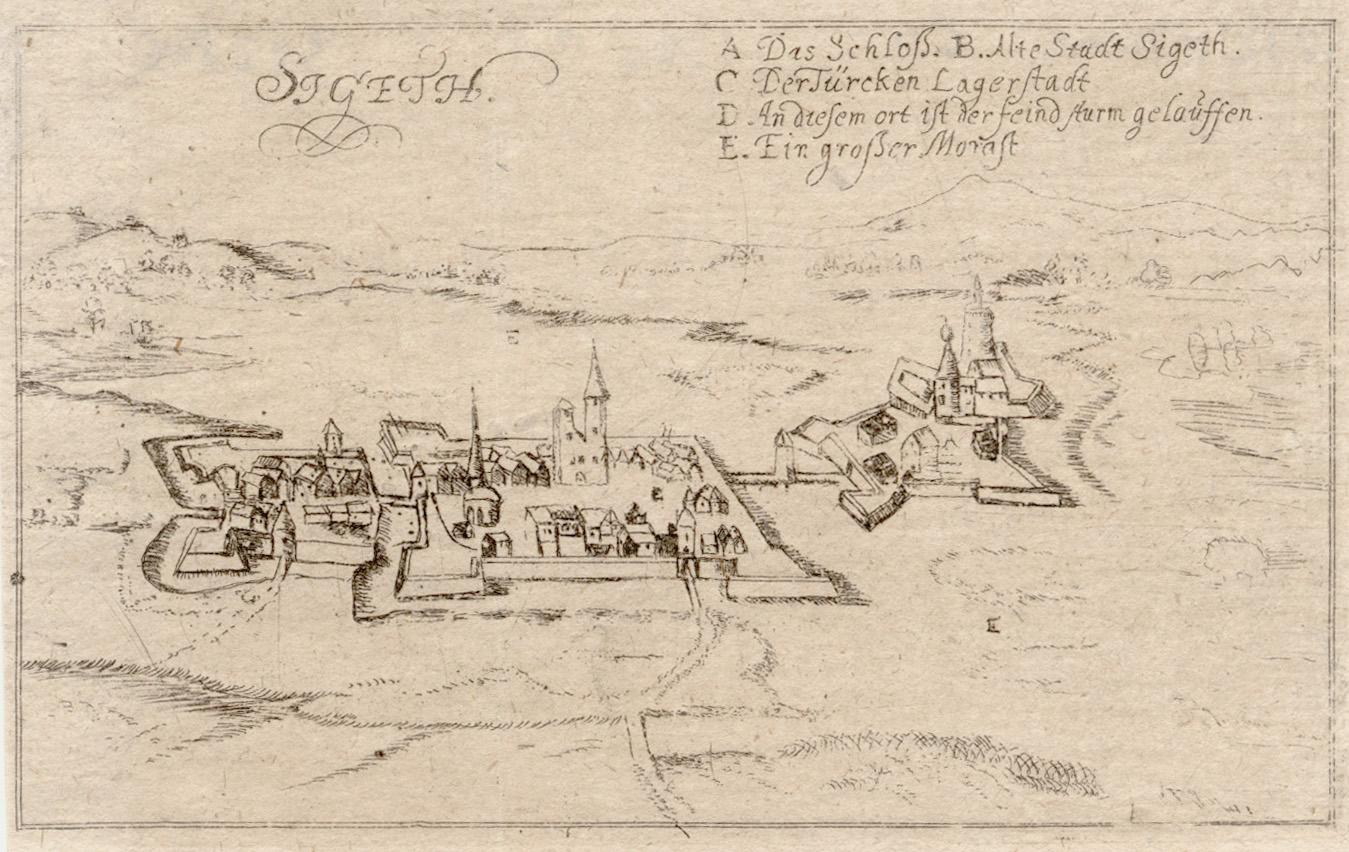 SIGETH.
A Das Schloß. B. Alte Stadt Sigeth.
C Der Türcken Lagerstadt
D. An diesem ort ist der feind sturm gelauffen.
E. Ein großer Morast
E
E
E